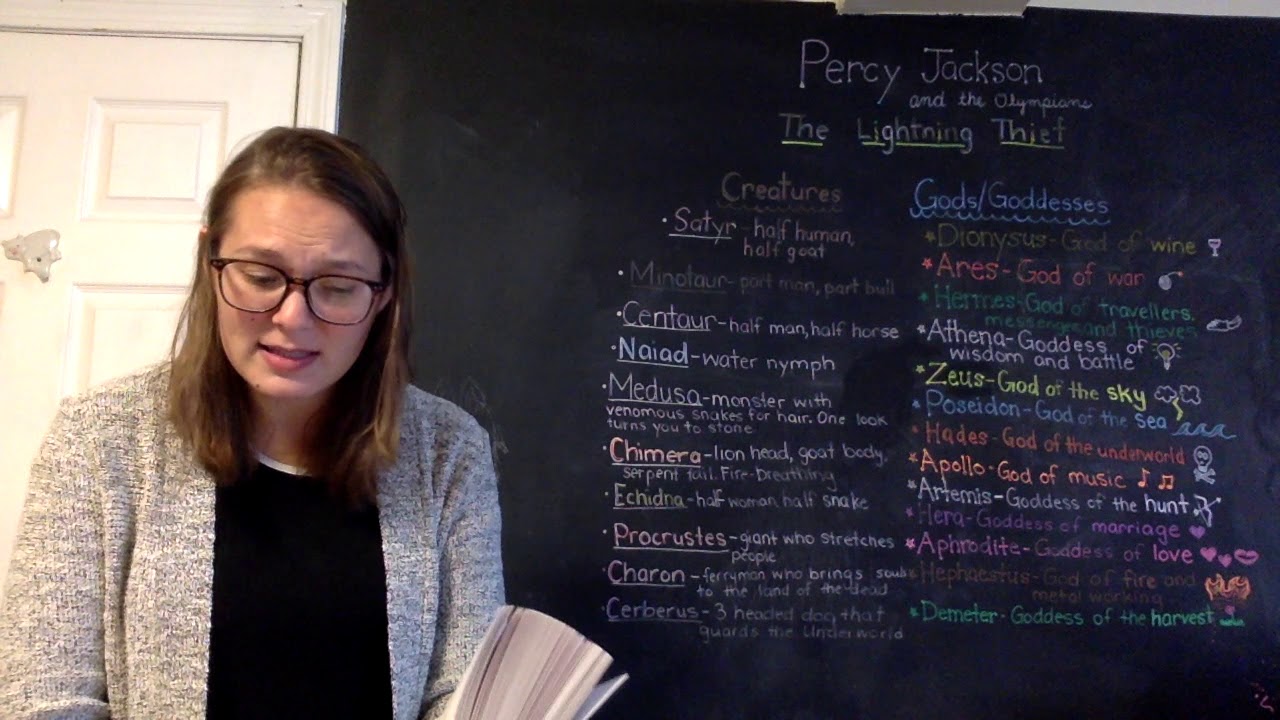 Percy Jackson
and the Olympians
The Lightning Thief
Creatures
• Satyr - half human,
half goat
• Minotaur - part man, part bull
• Centaur - half man, half horse
• Naiad - water nymph
• Medusa - monster with
venomous snakes for hair. One look
turns you to stone
• Chimera - lion head, goat body,
serpent tail. Fire-breathing
• Echidna - half woman half snake
• Procrustes - giant who stretches
people
• Charon - ferryman who brings souls
to the land of the dead
• Cerberus - 3 headed dog that
guards the Underworld
Gods/Goddesses
* Dionysus - God of wine
* Ares - God of war
* Hermes - God of travellers,
messengers, and thieves
* Athena - Goddess of
wisdom and battle
* Zeus - God of the sky
* Poseidon - God of the sea
* Hades - God of the underworld
* Apollo - God of music
* Artemis - Goddess of the hunt
* Hera - Goddess of marriage
* Aphrodite - Goddess of love
* Hephaestus - God of fire and
metal working
* Demeter - Goddess of the harvest